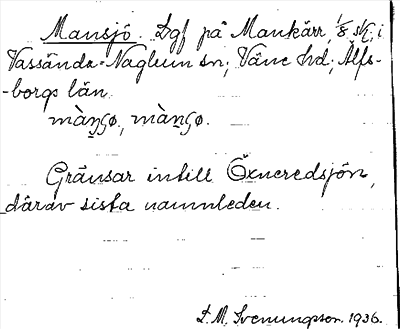 Mansjö. Lgf på Mankärr, 1/8 sk, i
Vassända-Naglum sn; Väne hd; Älfs-
-borgs län.
màŋʂø, màŋʂø.
Gränsar intill Öxneredsjön,
därav sista namnleden.
D. M. Svenungsson. 1936.